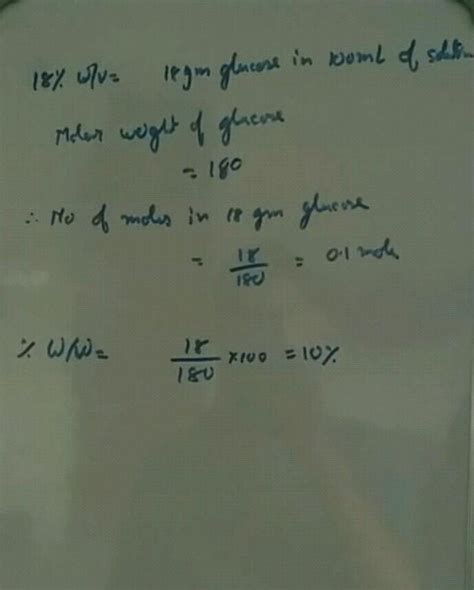 18% W/V = 18 gm glucose in 100mL of solution
Molar weight of glucose
= 180
∴ No of moles in 18 gm glucose
= 18/180 = 0.1 mole
% W/W = 18/180 ×100 = 10%